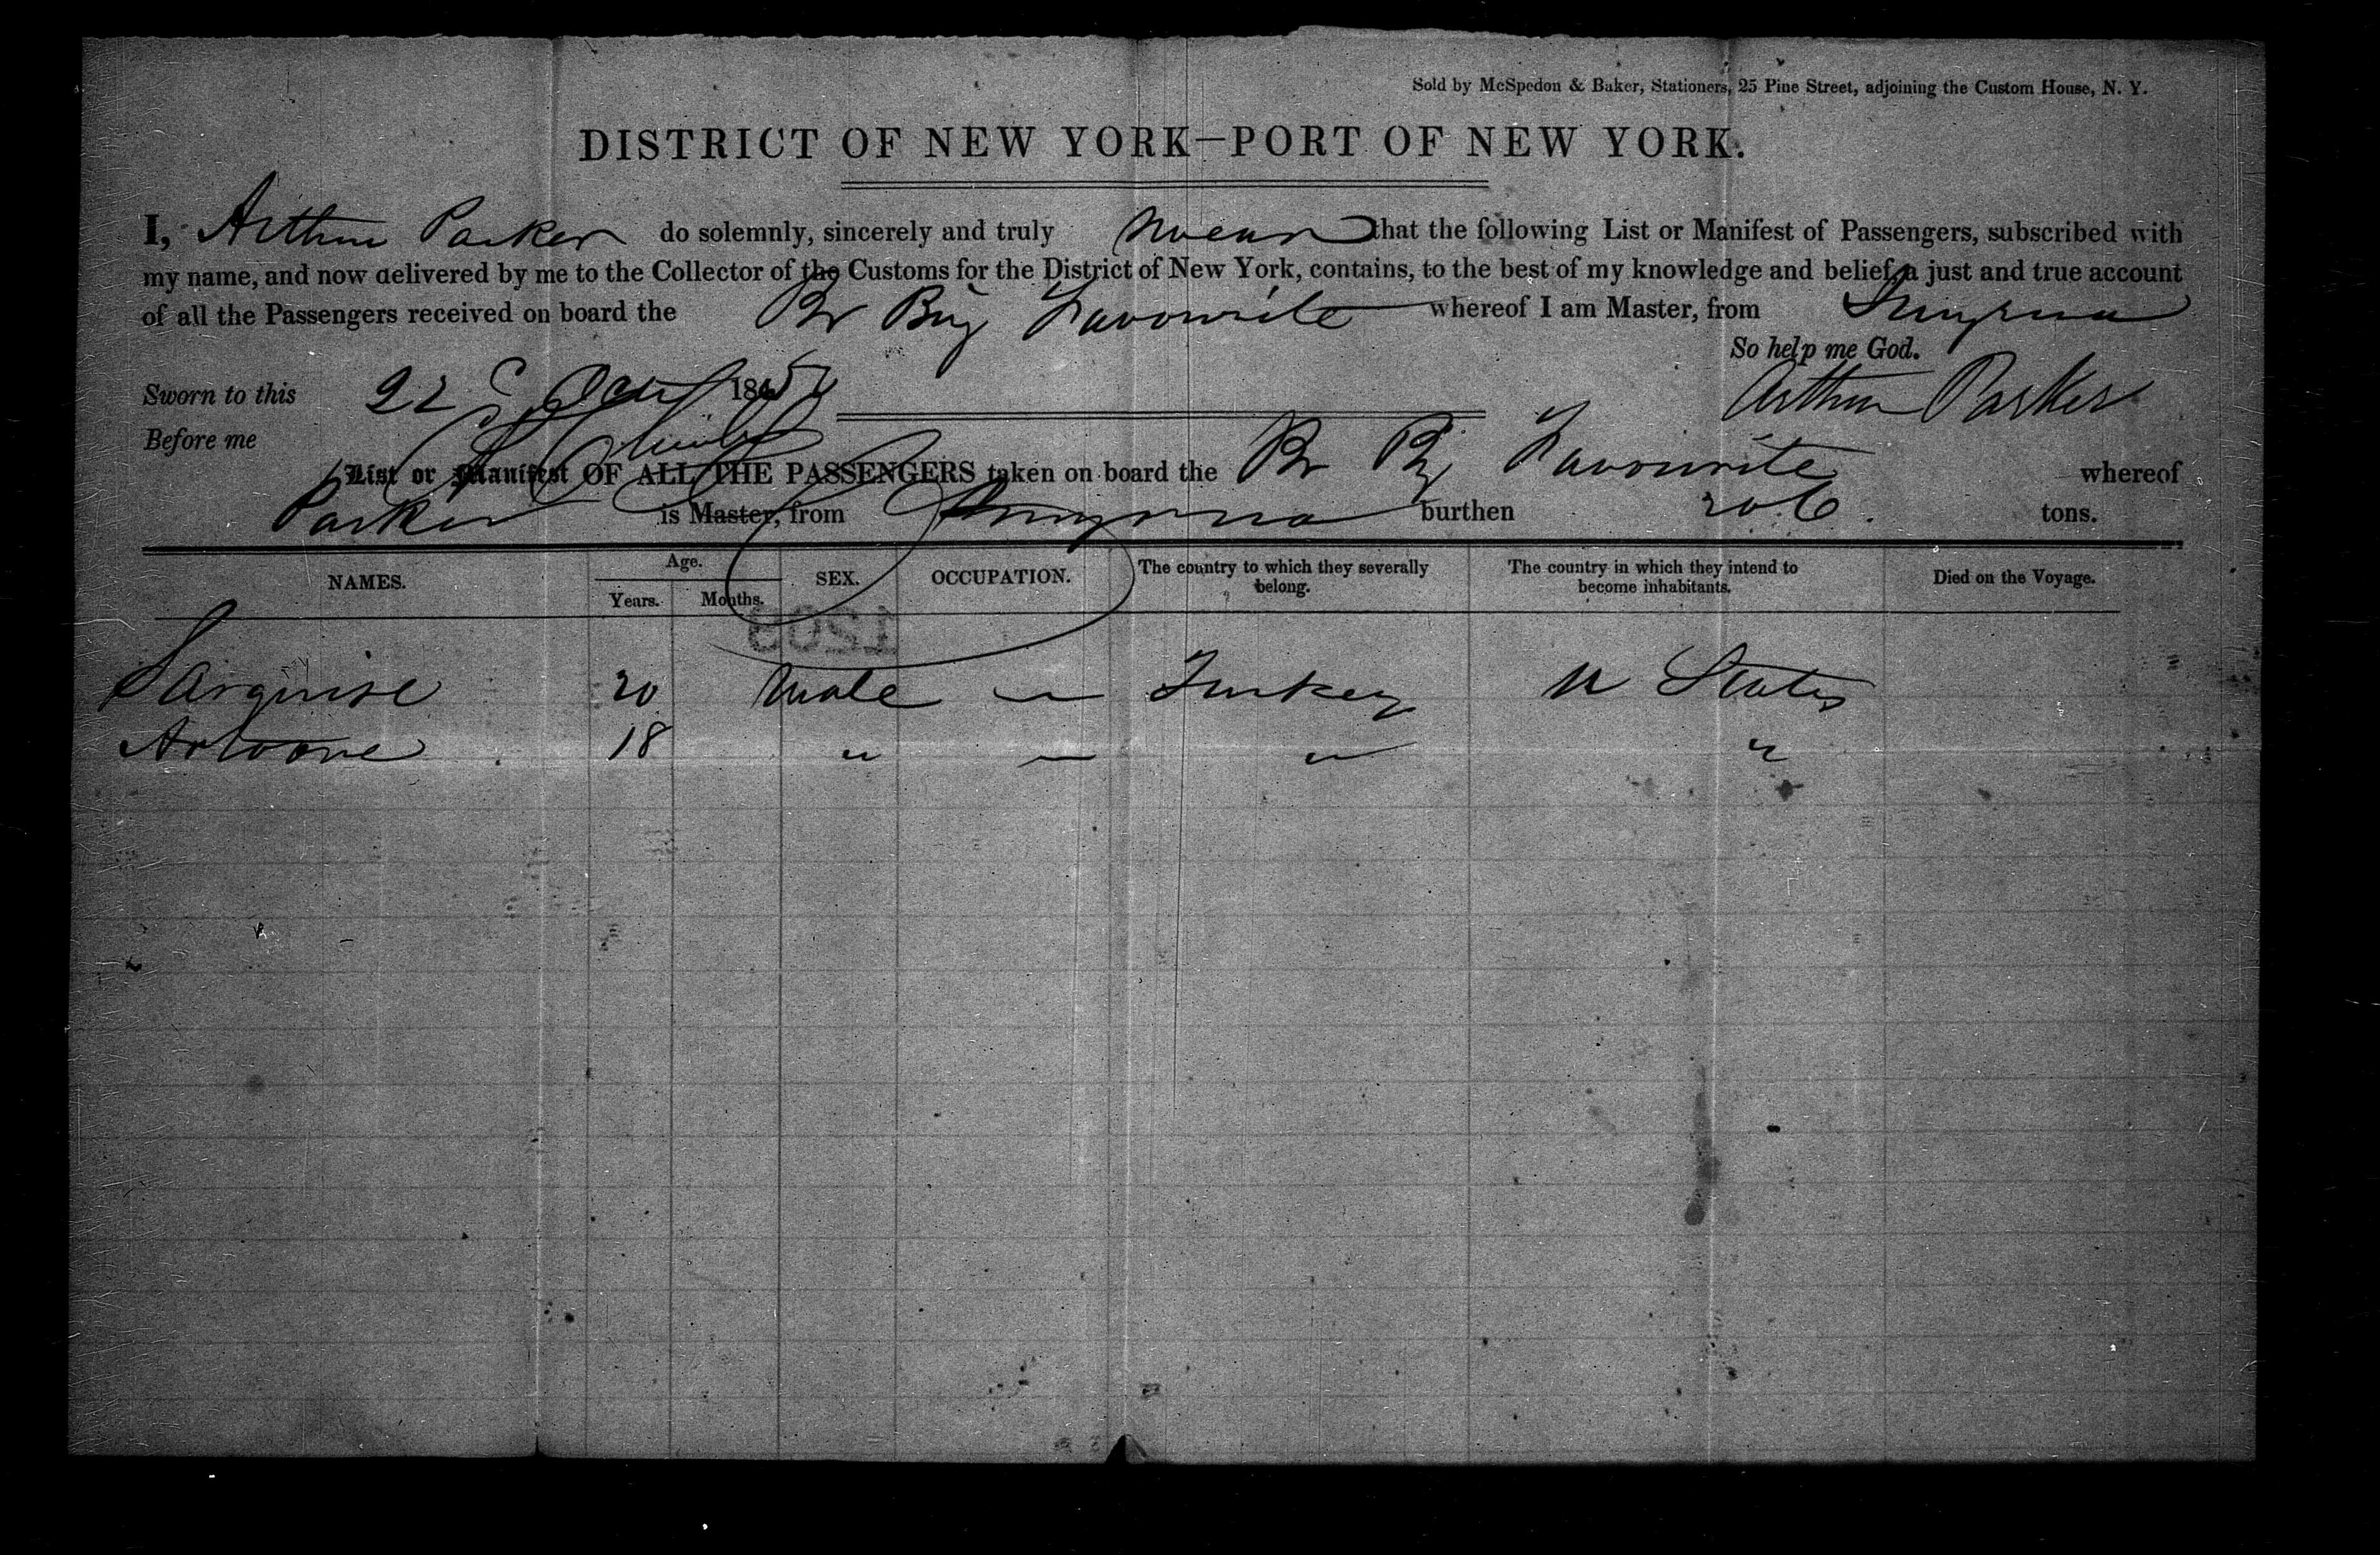 Sold by McSpedon & Baker, Stationers, 25 Pine Street, adjoining the Custom House, N. Y.
DISTRICT OF NEW YORK—PORT OF NEW YORK.
I, Arthur Parker do solemnly, sincerely and truly swear that the following List or Manifest of Passengers, subscribed with
my name, and now delivered by me to the Collector of the Customs for the District of New York, contains, to the best of my knowledge and belief, a just and true account
of all the Passengers received on board the Br Brig Favourite whereof I am Master, from Smyrna
So help me God.
Sworn to this 22 185 Arthur Parker
Before me
List or Manifest OF ALL THE PASSENGERS taken on board the Br Brig Favourite whereof
Parker is Master, from Smyrna burthen 206 tons.
NAMES. Age. Years. Months. SEX. OCCUPATION. The country to which they severally belong. The country in which they intend to become inhabitants. Died on the Voyage.
1209
Sarguise 20 Male — Turkey U States
Antoone 18 " — " "